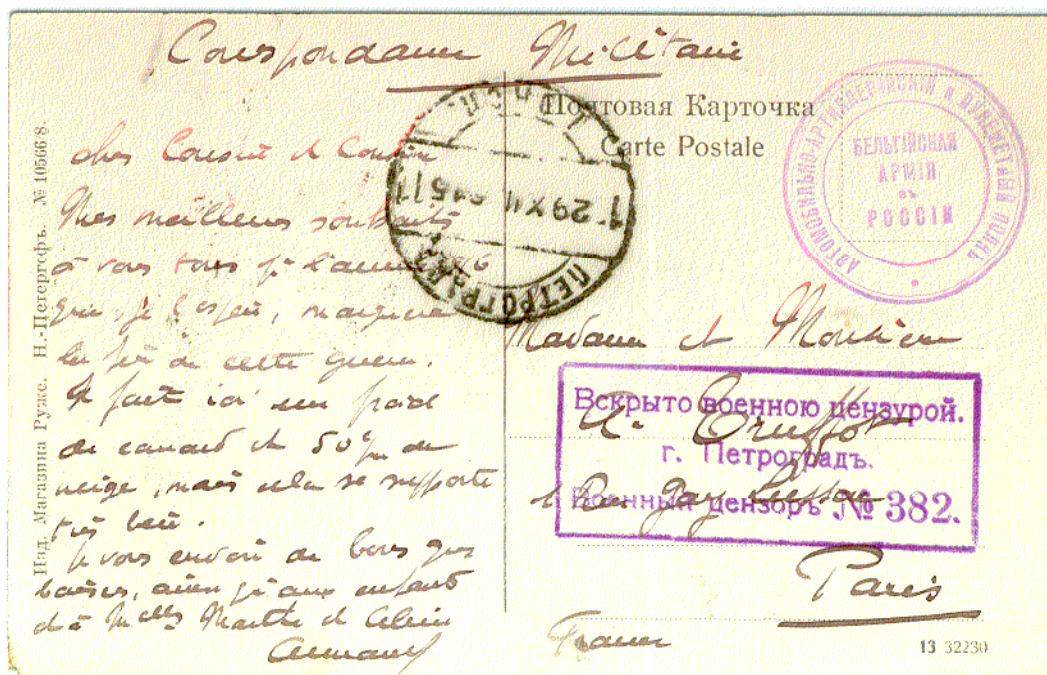 Correspondance Militaire
Почтовая Карточка
Carte Postale
ПЕТРОГРАДЪ
29 XII
АВТОМОБИЛЬНО-АРТИЛЛЕРІЙСКІЙ И ПУЛЕМЕТНЫЙ
БЕЛЬГІЙСКАЯ
АРМІЯ
въ
РОССІИ
Изд. Магазина Ружс. Н.-Петергофъ. № 10566/8.
cher Cousine et Cousin
Mes meilleurs souhaits
à vous tous pr l'année 16
qui, je l'espère, marquera
la fin de cette guerre.
Il fait ici un froid
de canard et 50 c/m de
neige, mais cela se supporte
très bien.
Je vous envoie de bons gros
baisers, ainsi qu'aux enfants
et à Melles Marthe et
Armand
Madame et Monsieur
Truffot
Вскрыто военною цензурой.
г. Петроградъ.
Военный цензоръ № 382.
Rue Gay Lussac
Paris
France
13 32230